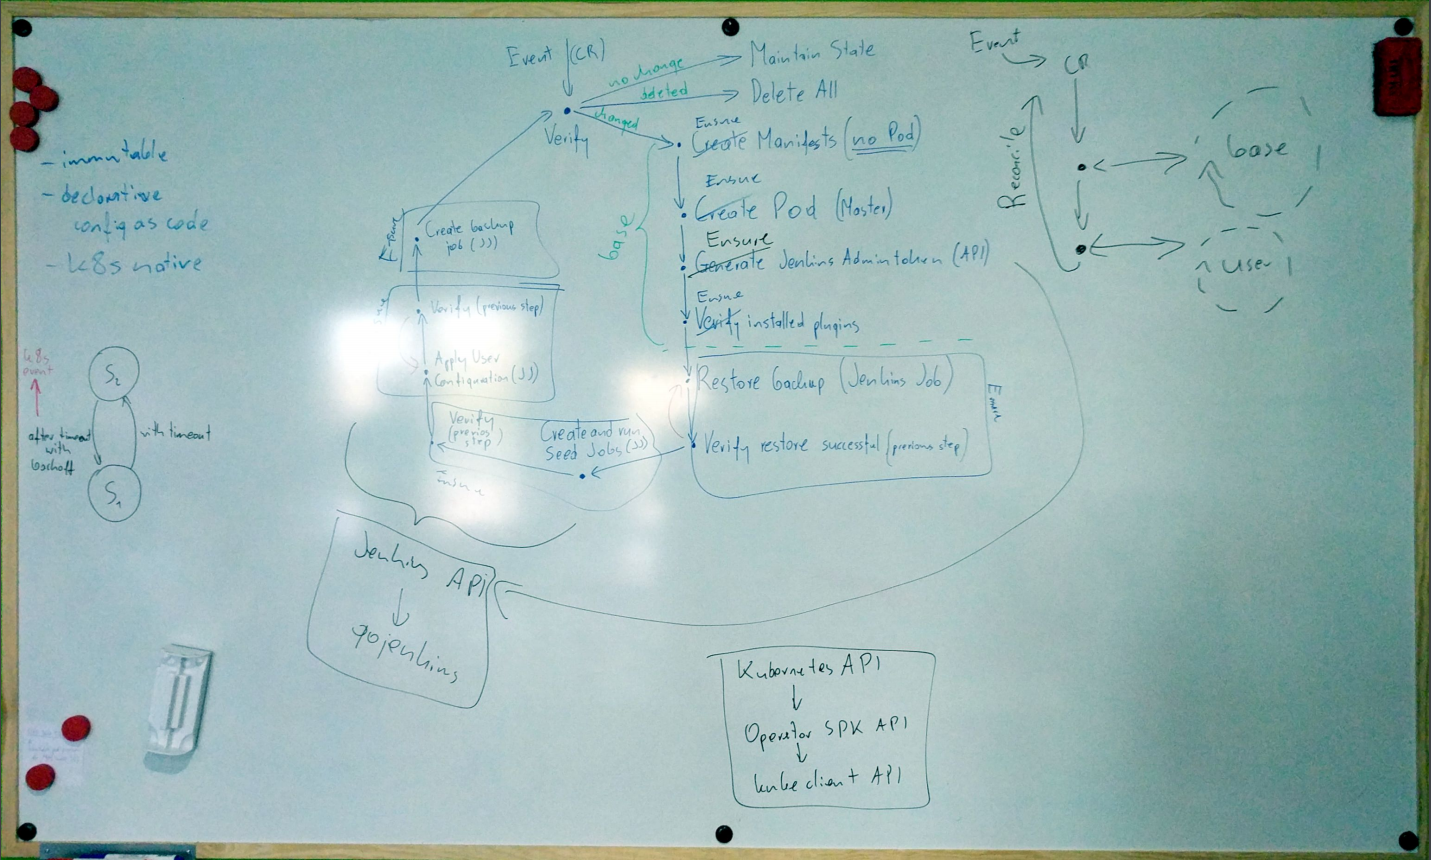 - immutable
- declarative
config as code
- k8s native
k8s
event
after timeout
with
backoff
S2
with timeout
S1
Event (CR)
no change
Maintain State
deleted
Delete All
changed
Verify
Ensure
Create Manifests (no Pod)
Ensure
Create Pod (Master)
Ensure
Generate Jenkins Admin token (API)
Ensure
Verify installed plugins
base
Restore backup (Jenkins Job)
Verify restore successful (previous step)
Create and run
Seed Jobs (JJ)
Verify
(previous
step)
Ensure
Apply User
Configuration (JJ)
Verify (previous step)
Create backup
job (JJ)
Jenkins API
gojenkins
Kubernetes API
Operator SDK API
kube client API
Event
CR
Reconcile
base
user